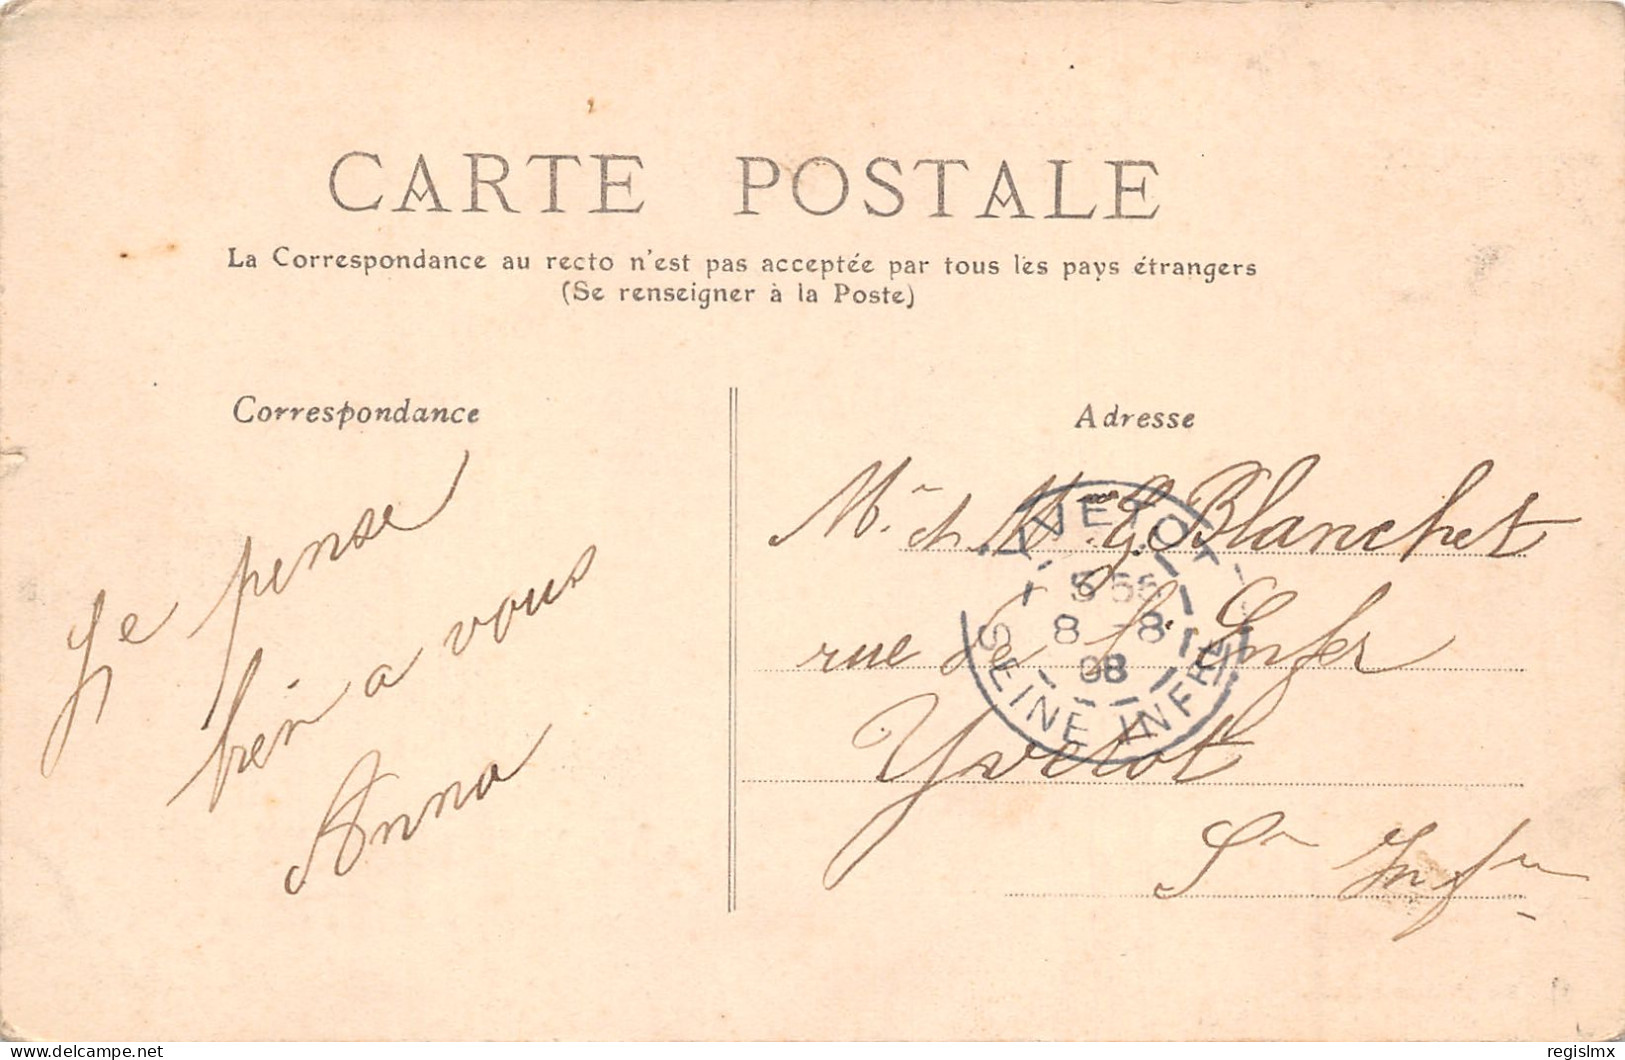 CARTE POSTALE
La Correspondance au recto n'est pas acceptée par tous les pays étrangers
(Se renseigner à la Poste)
Correspondance
Je pense
bien a vous
Anna
Adresse
Mr et Mme G. Blanchet
rue de l'Enfer
Yvetot
Sne Infre
YVETOT
8 -8
08
SEINE INFRE
delcampe.net
regislmx